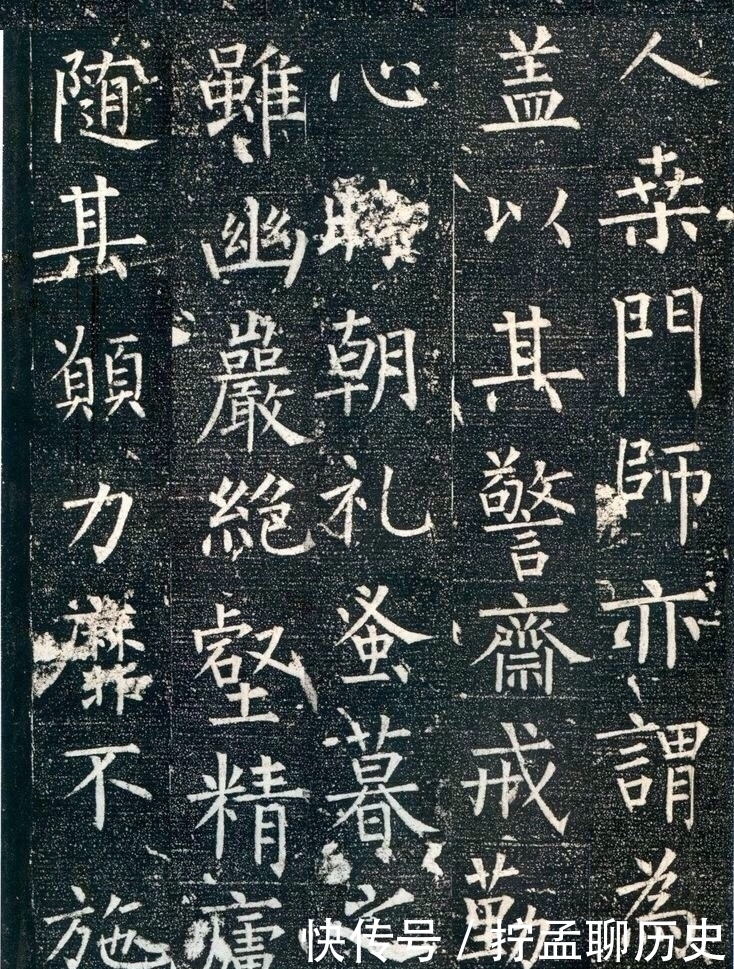 人桒門師亦謂為
盖以其警齋戒勤
心朝礼蚤暮之
雖幽巖絕壑精廬
随其願力靡不施
快传号 / 拧孟聊历史